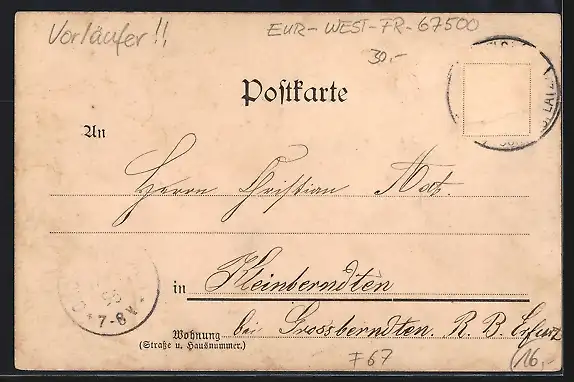 Vorläufer!!
EUR-WEST-FR-67500
30,-
Postkarte
LATZ
An
Herrn Christian
in Kleinberndten
7-8 V.
Wohnung
(Straße u. Hausnummer.)
bei Grossberndten. R. B. Erfurt
F67
(16,-